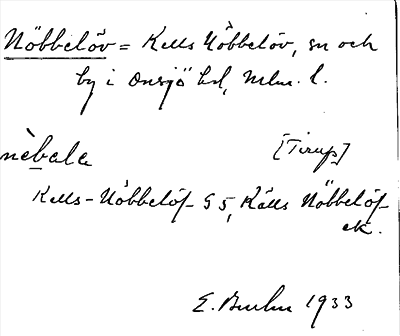 Nöbbelöv = Kells Nöbbelöv, sn och
by i Onsjö hd, Mlm. l.
nèbala [Tirup]
Kells-Nöbbelöf G 5, Källs Nöbbelöf
ek.
E. 1933